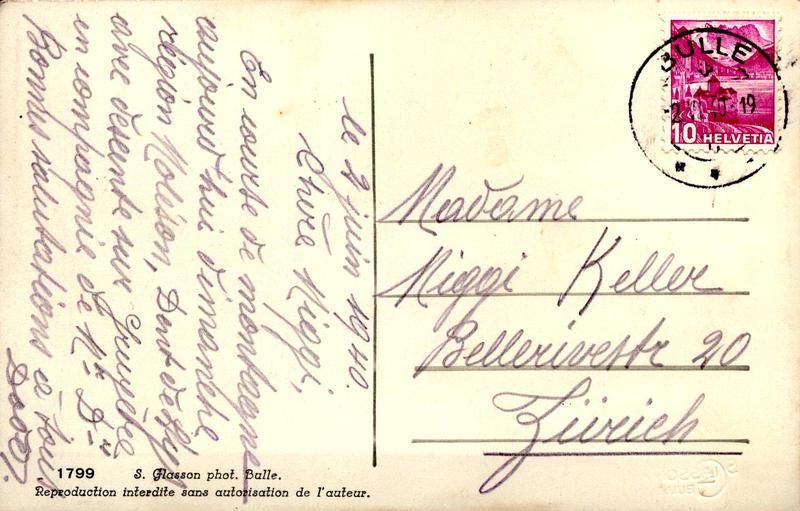 le 2 juin 1940.
Chère Niggi,
En course de montagne
aujourd'hui dimanche
région Moléson, Dent de Lys
avec descente sur Gruyères
en compagnie de
Bonnes salutations à tous
BULLE
-2.VI.40-19
10 HELVETIA
Madame
Niggi Keller
Bellerivestr 20
Zürich
1799 S. Glasson phot. Bulle.
Reproduction interdite sans autorisation de l'auteur.